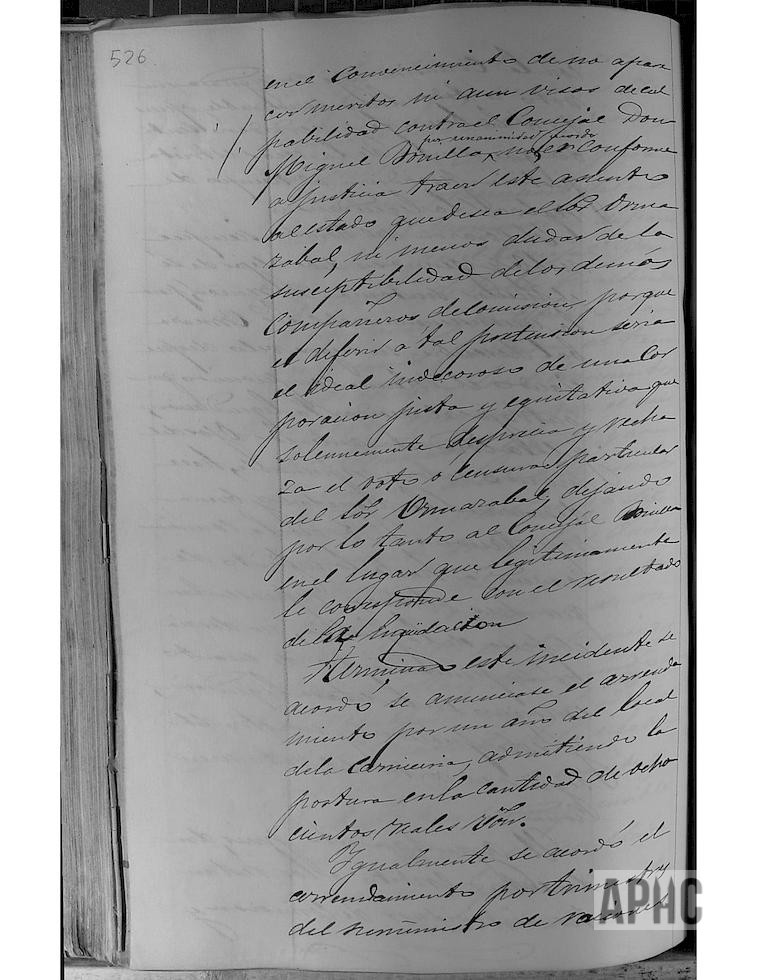 526
en el convencimiento de no apare
cer meritos ni aun visos de cul
pabilidad contra el Concejal Don
por unanimidad acordó
Miguel Bonilla, no es conforme
a justicia traer este asunto
al estado que desea el Sor Orma
zabal, ni menos dudar de la
susceptibilidad de los demás
compañeros de Comision, porque
el diferir a tal pretension seria
el ideal indecoroso de una Cor
poracion justa y equitativa que
solennemente desprecia y recha
za el voto o censura particular
del Sor Ormazabal, dejando
por lo tanto al Concejal Bonilla
en el lugar que legitimamente
le corresponde con el resultado
de la liquidacion
Terminado este incidente se
acordó se anunciase el arrenda
miento por un año del local
de la Carniceria, admitiendo la
postura en la cantidad de ocho
cientos reales von.
Igualmente se acordó el
arrendamiento por trimestre
del suministro de raciones
APHC